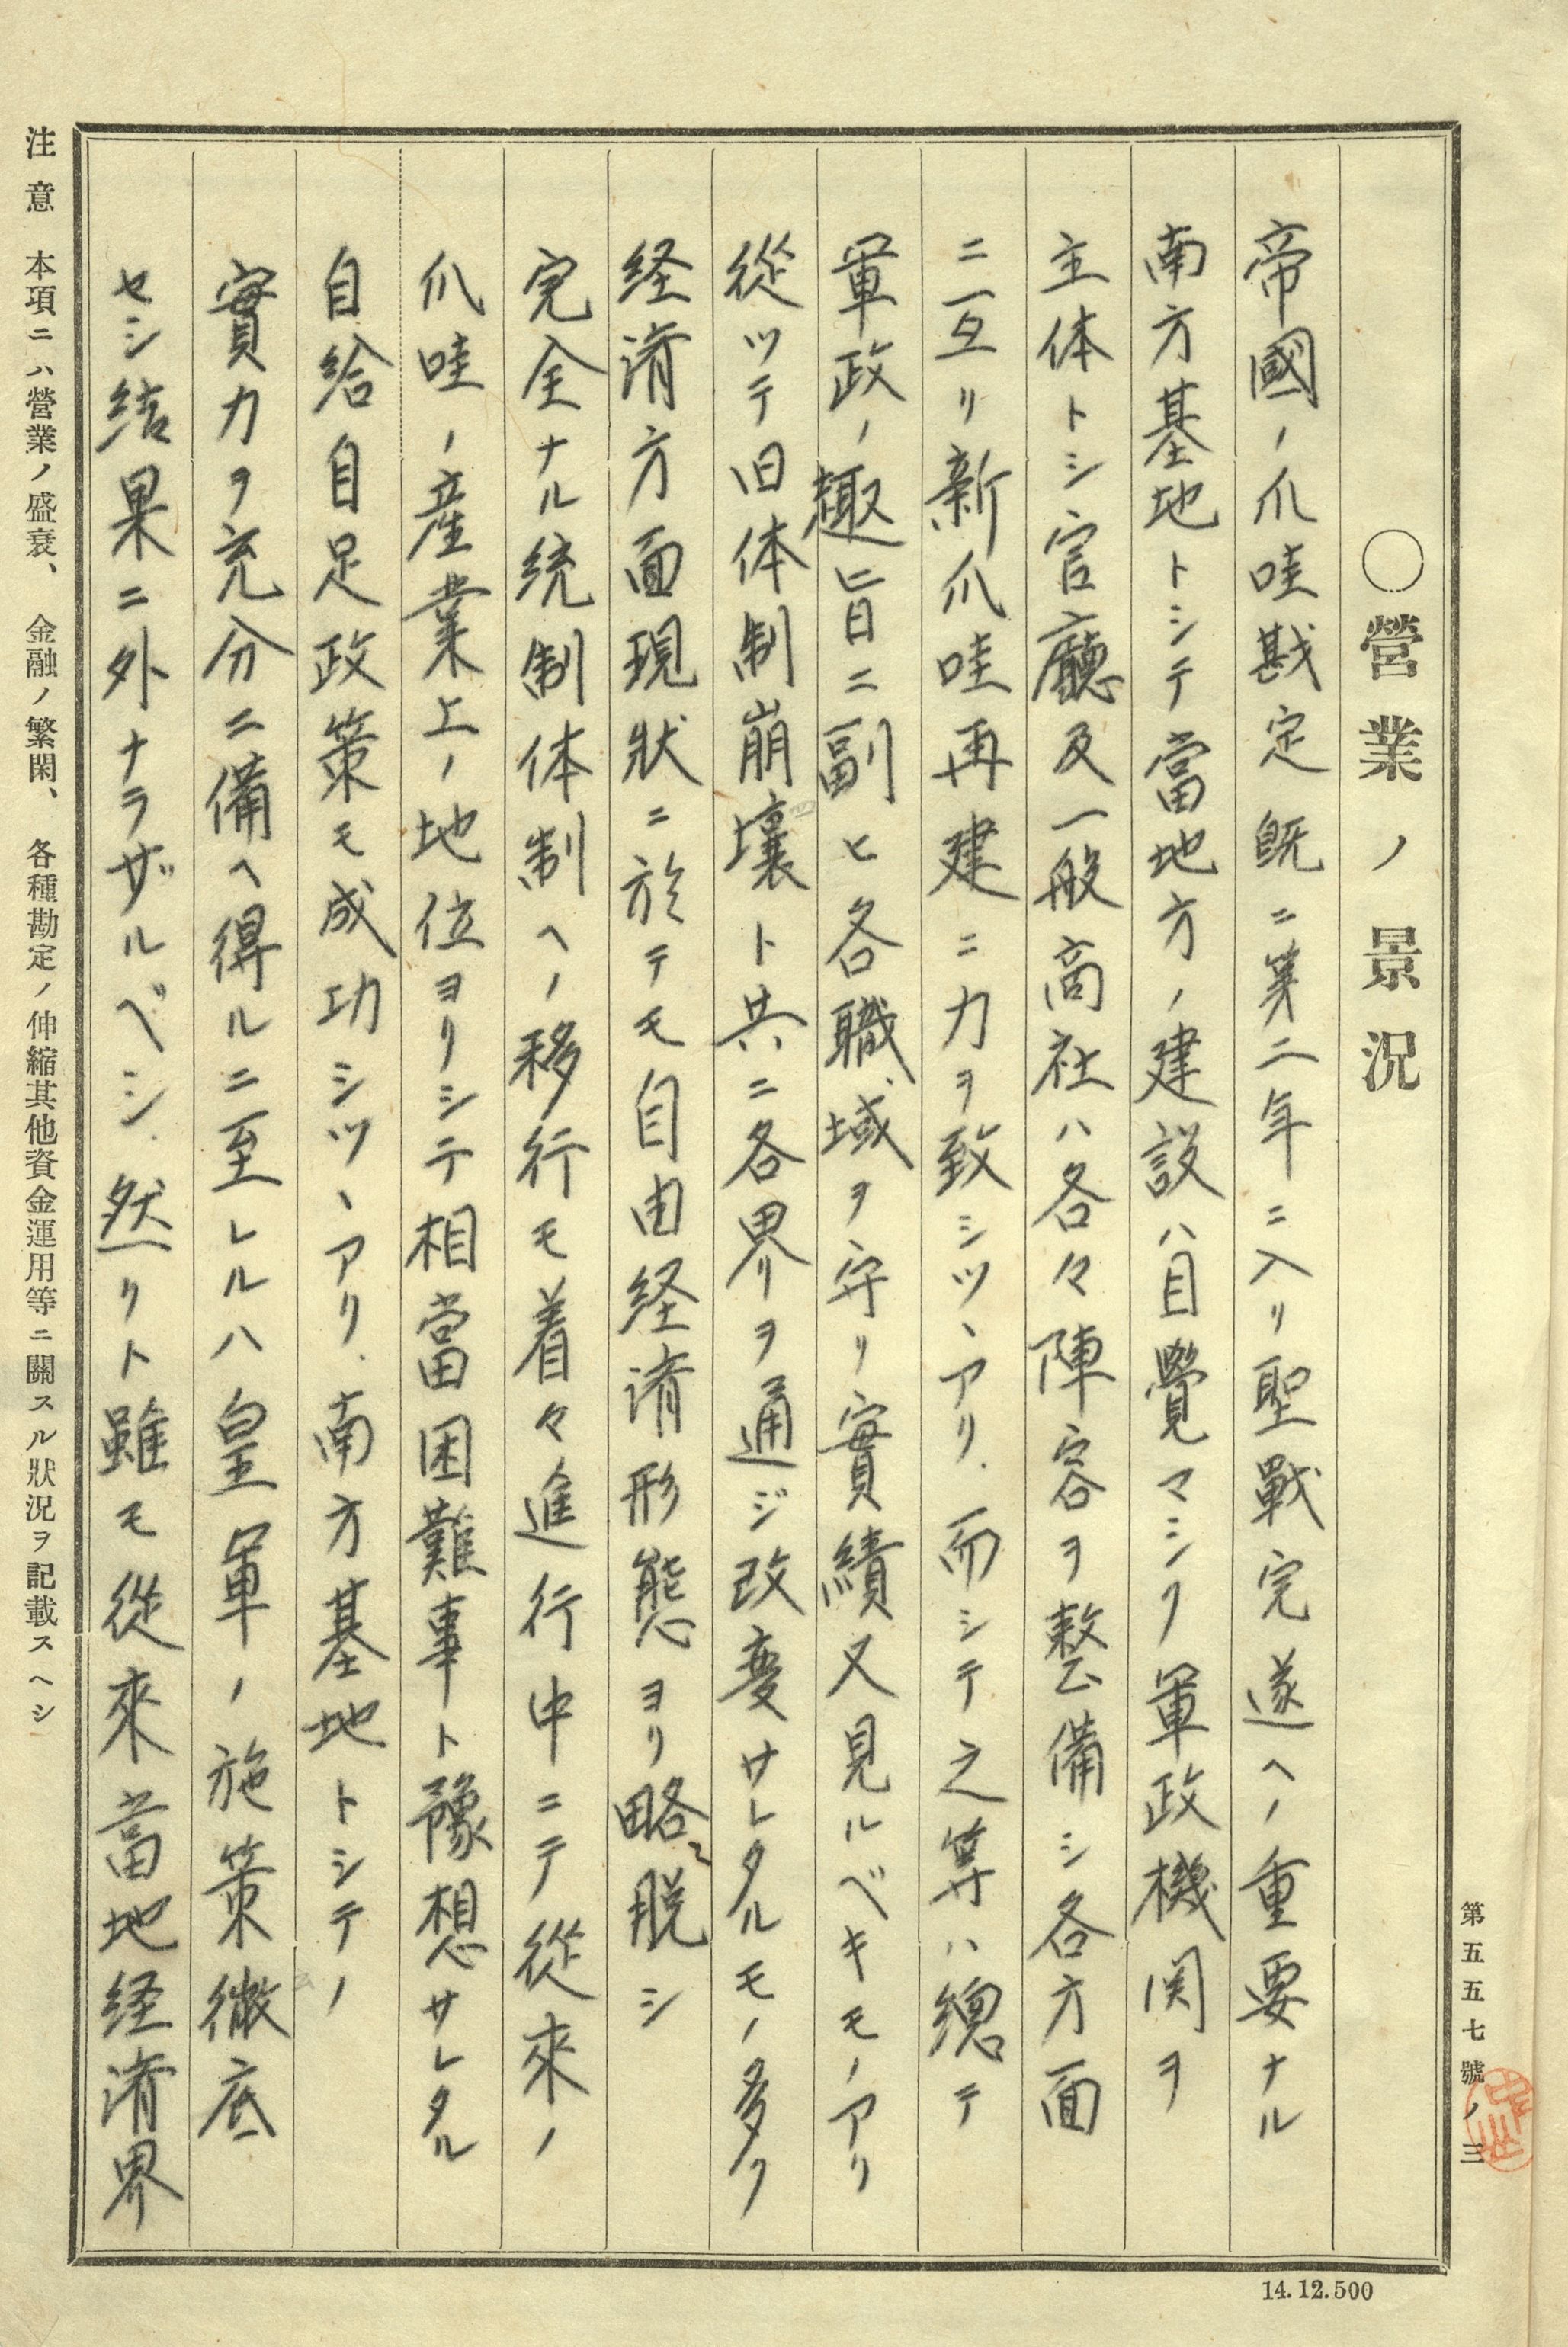 第五五七號ノ三
○營業ノ景況
帝國ノ爪哇戡定既ニ第二年ニ入リ聖戰完遂ヘノ重要ナル
南方基地トシテ當地方ノ建設ハ目覺マシク軍政機関ヲ
主体トシ官廳及一般商社ハ各々陣容ヲ整備シ各方面
ニ亙リ新爪哇再建ニ力ヲ致シツヽアリ.而シテ之等ハ總テ
軍政ノ趣旨ニ副ヒ各職域ヲ守リ實績又見ルベキモノアリ
從ツテ旧体制崩壞ト共ニ各界ヲ通ジ改変サレタルモノ多ク
経済方面現狀ニ於テモ自由経済形態ヨリ略々脱シ
完全ナル統制体制ヘノ移行モ着々進行中ニテ從來ノ
爪哇ノ産業上ノ地位ヨリシテ相當困難事ト豫想サレタル
自給自足政策モ成功シツヽアリ.南方基地トシテノ
實力ヲ充分ニ備ヘ得ルニ至レルハ皇軍ノ施策徹底
セシ結果ニ外ナラザルベシ.然リト雖モ從來當地経済界
注意 本項ニハ營業ノ盛衰、金融ノ繁閑、各種勘定ノ伸縮其他資金運用等ニ關スル狀況ヲ記載スヘシ
14.12.500